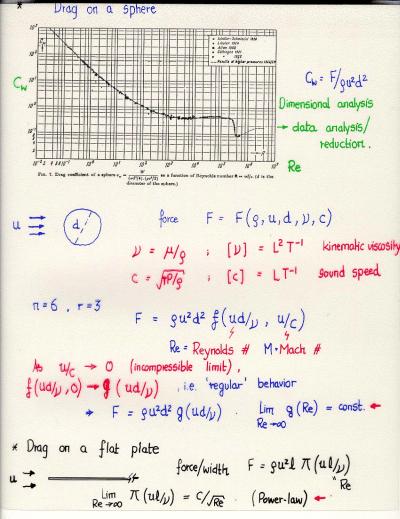 * Drag on a sphere
C_w
C_w = F/ρu²d²
Dimensional analysis
→ data analysis/
reduction.
Re
FIG. 7. Drag coefficient of a sphere as a function of Reynolds number (d is the
diameter of the sphere.)
u d force F = F(ρ, u, d, ν, c)
ν = μ/ρ ; [ν] = L²T⁻¹ kinematic viscosity
c = √γP/ρ ; [c] = LT⁻¹ sound speed
n=6, r=3
F = ρu²d² f(ud/ν, u/c)
Re = Reynolds # M = Mach #
As u/c → 0 (incompressible limit),
f(ud/ν, 0) → g(ud/ν) , i.e. 'regular' behavior
→ F = ρu²d² g(ud/ν). Lim g(Re) = const. ←
Re→∞
* Drag on a flat plate
u force/width F = ρu²l π(ul/ν)
" Re
Lim π(ul/ν) = C/√Re . (Power-law) ←
Re→∞